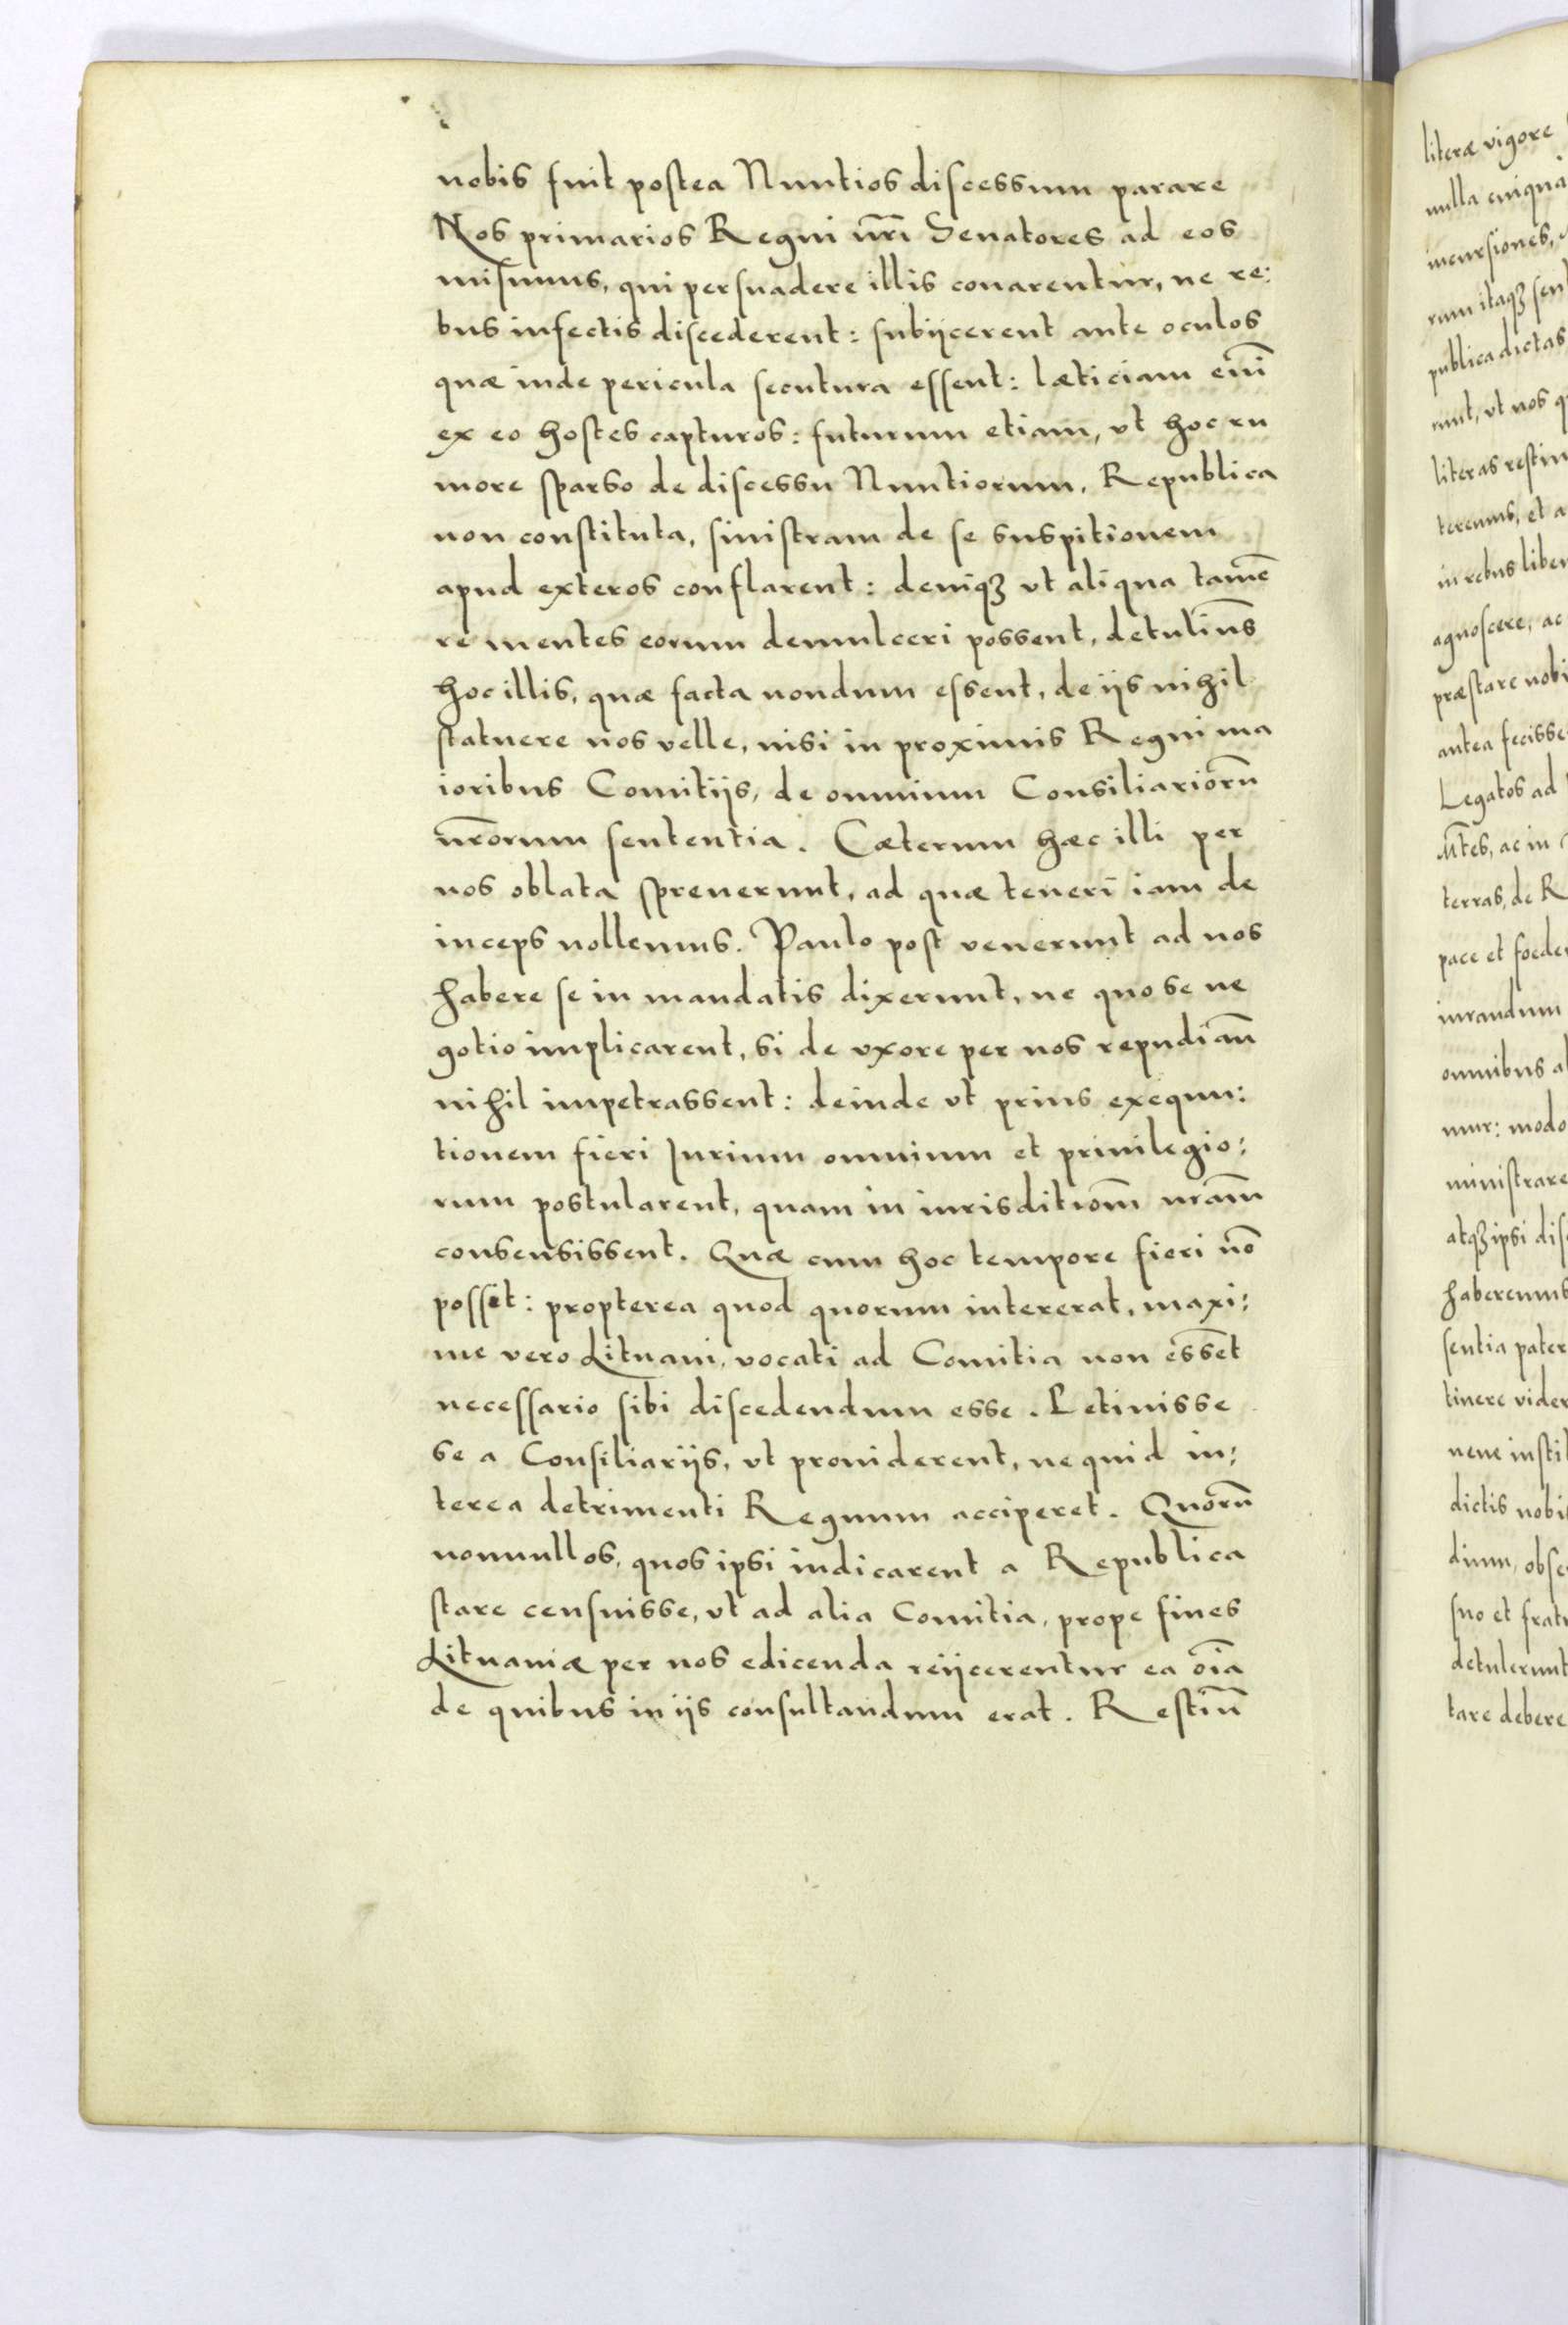 nobis fuit postea Nuntios discessum parare
Nos primarios Regni nr̄i Senatores ad eos
misimus, qui persuadere illis conarentur, ne re:
bus infectis discederent: subijcerent ante oculos
quæ inde pericula secutura essent: læticiam em̄
ex eo hostes capturos: futurum etiam, vt hoc ru
more sparso de discessu Nuntiorum, Republica
non constituta, sinistram de se suspitionem
apud exteros conflarent: deniqꝫ vt aliqua tamē
re mentes eorum demulceri possent, detulim̄s
hoc illis, quæ facta nondum essent, de ijs nihil
statuere nos velle, nisi in proximis Regni ma
ioribus Comitijs, de omnium Consiliariorū
nr̄orum sententia. Cæterum hæc illi per
nos oblata spreuerunt, ad quæ teneri iam de
inceps nollemus. Paulo post venerunt ad nos
habere se in mandatis dixerunt, ne quo se ne
gotio implicarent, si de vxore per nos repudian̄
nihil impetrassent: deinde vt prius exequu:
tionem fieri Iurium omnium et priuilegio:
rum postularent, quam in iurisditiom̄ nram̄
consensissent. Quæ cum hoc tempore fieri nō
posset: propterea quod quorum intererat, maxi:
me vero Lituani, vocati ad Comitia non essēt
necessario sibi discedendum esse. Petiuisse
se a Consiliarijs, vt prouiderent, ne quid in:
terea detrimenti Regnum acciperet. Quorū
nonnullos, quos ipsi iudicarent a Republica
stare censuisse, vt ad alia Comitia, prope fines
Lituaniæ per nos edicenda reijcerentur ea oīa
de quibus in ijs consultandum erat. Restiū
literæ vigore
nulla cuiqua
incursiones,
rum itaqꝫ sen
publica dictas
runt, vt nos q
literas restin
teremus, et a
in rebus liber
agnoscere, ac
præstare nobi
antea fecisse
Legatos ad
Mt̄es, ac in
terras, de R
pace et foeder
iurandum
omnibus al
mur: modo
ministrare
atqꝫ ipsi dis
haberemus
sentia pater
tinere vider
neue instit
dictis nobi
dium, obse
suo et fratr
detulerunt
tare debere